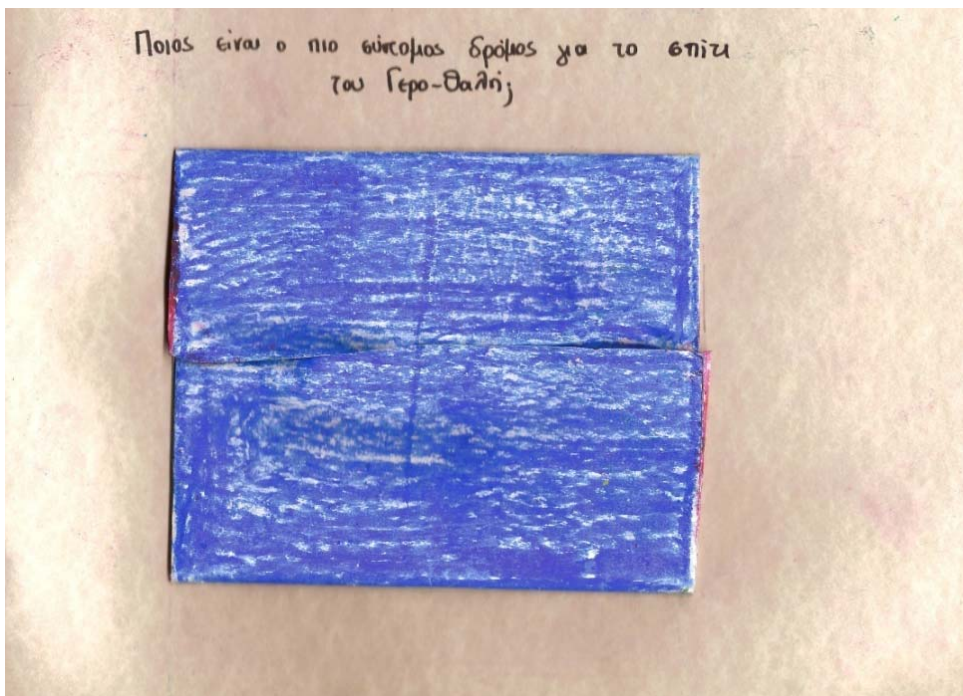 Ποιος είναι ο πιο σύντομος δρόμος για το σπίτι
του Γερο-Θαλή;